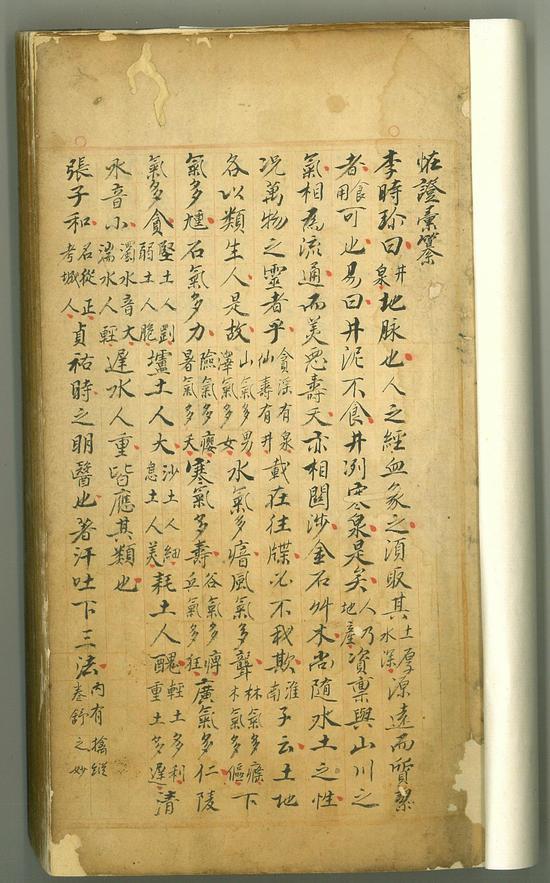 恠證彙纂
李時珍曰井泉地脉也人之經血象之須取其土厚水深源遠而質潔
者食用可也易曰井泥不食井冽寒泉是矣人乃地產資禀與山川之
氣相為流通而美惡壽夭亦相關涉金石艸木尚随水土之性
况萬物之靈者乎貪淫有泉仙壽有井載在往牒必不我欺淮南子云土地
各以類生人是故山氣多男澤氣多女水氣多瘖風氣多聾林氣多癃木氣多傴下
氣多尰石氣多力險氣多癭暑氣多夭寒氣多壽谷氣多痹丘氣多狂廣氣多仁陵
氣多貪堅土人剛弱土人脆壚土人大沙土人細息土人美耗土人醜輕土多利重土多遲清
水音小濁水音大湍水人輕遲水人重皆應其類也
張子和名從正考城人貞祐時之明醫也著汗吐下三法內有擒縱卷舒之妙